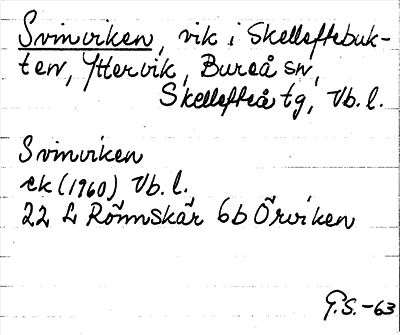 Svinviken, vik i Skelleftebuk-
ten, Yttervik, Bureå sn,
Skellefteå tg, Vb. l.
Svinviken
ek (1960) Vb. l.
22 L Rönnskär 6b Örviken
G.S. -63